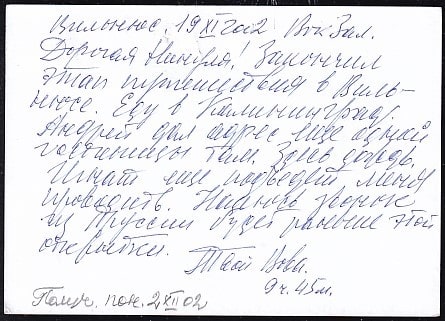 Вильнюс. 19 XI 2002 Вокзал.
Дорогая Нинуля! Закончил
этап путешествия в Виль-
нюсе Еду в Калининград.
Андрей дал адрес еще одной
гостиницы там. Здесь дождь.
Игнат еще подведет меня
проводить. Наверь звонок
из Пруссии будет раньше этой
открытки.
Твой Вова.
9 ч. 45 м.
Получ. пон. 2 XII 02